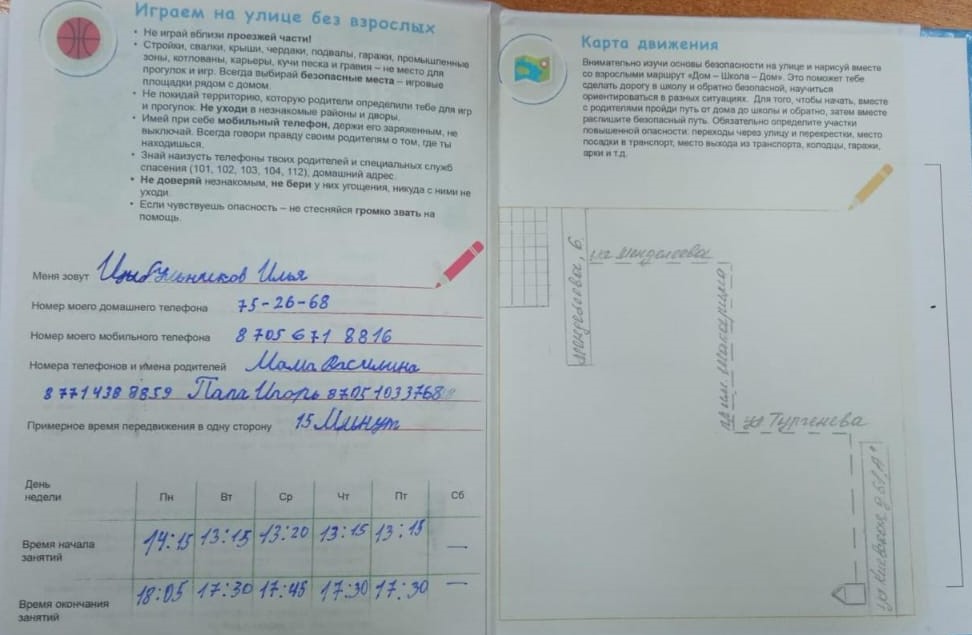 Играем на улице без взрослых
• Не играй вблизи проезжей части!
• Стройки, свалки, крыши, чердаки, подвалы, гаражи, промышленные
зоны, котлованы, карьеры, кучи песка и гравия – не место для
прогулок и игр. Всегда выбирай безопасные места – игровые
площадки рядом с домом.
• Не покидай территорию, которую родители определили тебе для игр
и прогулок. Не уходи в незнакомые районы и дворы.
• Имей при себе мобильный телефон, держи его заряженным, не
выключай. Всегда говори правду своим родителям о том, где ты
находишься.
• Знай наизусть телефоны твоих родителей и специальных служб
спасения (101, 102, 103, 104, 112), домашний адрес.
• Не доверяй незнакомым, не бери у них угощения, никуда с ними не
уходи.
• Если чувствуешь опасность – не стесняйся громко звать на
помощь.
Меня зовут Цыбульников Илья
Номер моего домашнего телефона 75-26-68
Номер моего мобильного телефона 8 705 671 8816
Номера телефонов и имена родителей Мама Василина
8 771 438 8859 Папа Игорь 8705 1033768
Примерное время передвижения в одну сторону 15 Минут
День
недели Пн Вт Ср Чт Пт Сб
Время начала
занятий 14:15 13:15 13:20 13:15 13:15 —
Время окончания
занятий 18:05 17:30 17:45 17:30 17:30 —
Карта движения
Внимательно изучи основы безопасности на улице и нарисуй вместе
со взрослыми маршрут «Дом – Школа – Дом». Это поможет тебе
сделать дорогу в школу и обратно безопасной, научиться
ориентироваться в разных ситуациях. Для того, чтобы начать, вместе
с родителями пройди путь от дома до школы и обратно, затем вместе
распишите безопасный путь. Обязательно определите участки
повышенной опасности: переходы через улицу и перекрестки, место
посадки в транспорт, место выхода из транспорта, колодцы, гаражи,
арки и т.д.
Менделеева, 6
Менделеева
ул Тургенева
ул Киевская, д 51/А